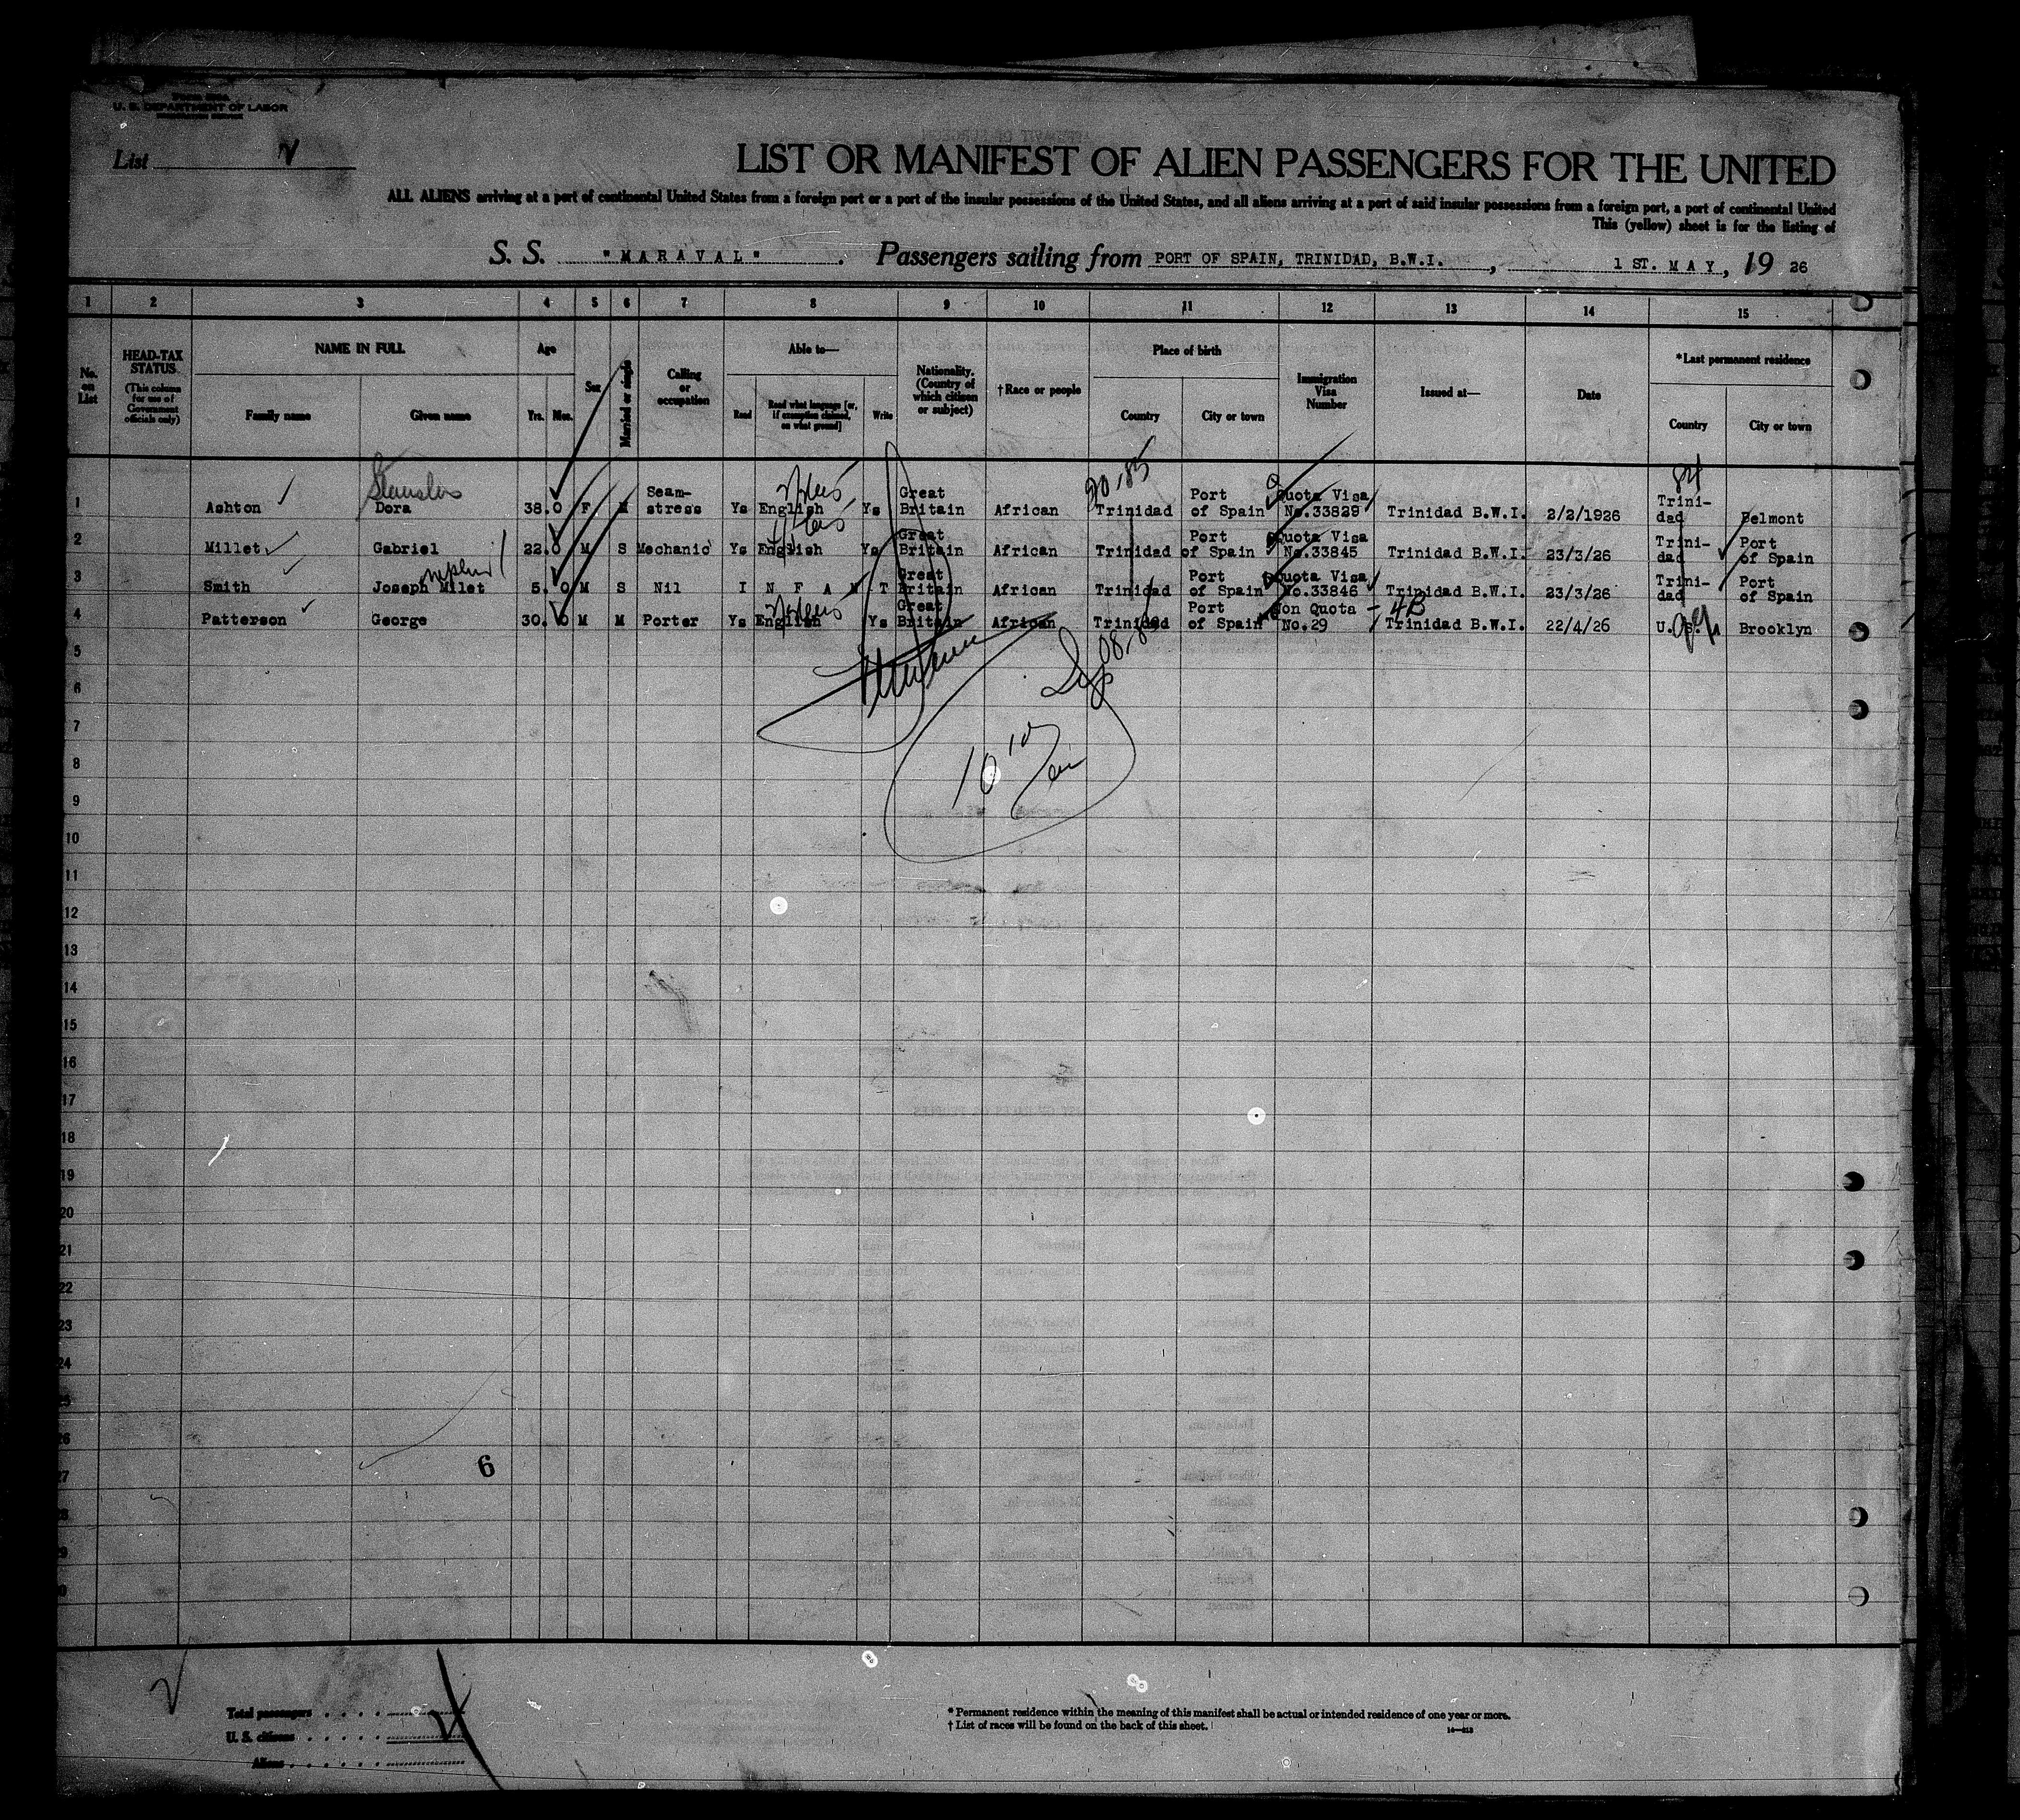 U. S. DEPARTMENT OF LABOR
List 2
LIST OR MANIFEST OF ALIEN PASSENGERS FOR THE UNITED
ALL ALIENS arriving at a port of continental United States from a foreign port or a port of the insular possessions of the United States, and all aliens arriving at a port of said insular possessions from a foreign port, a port of continental United
This (yellow) sheet is for the listing of
S. S. "MARAVAL" . Passengers sailing from PORT OF SPAIN, TRINIDAD, B.W.I. , 1 ST. MAY, 19 26
1 2 3 4 5 6 7 8 9 10 11 12 13 14 15
No. on List
HEAD-TAX STATUS (This column for use of Government officials only)
NAME IN FULL
Family name Given name
Age
Yrs. Mos.
Sex
Married or single
Calling or occupation
Able to—
Read Read what language [or, if exemption claimed, on what ground] Write
Nationality. (Country of which citizen or subject)
†Race or people
Place of birth
Country City or town
Immigration Visa Number
Issued at—
Date
*Last permanent residence
Country City or town
1 Ashton Stanislus Dora 38.0 F M Seam-stress Ys English Ys Great Britain African Trinidad Port of Spain Quota Visa No.33829 Trinidad B.W.I. 2/2/1926 Trini-dad Belmont
20-85
84
2 Millet Gabriel 22.0 M S Mechanic Ys English Ys Great Britain African Trinidad Port of Spain Quota Visa No.33845 Trinidad B.W.I. 23/3/26 Trini-dad Port of Spain
nephew
3 Smith Joseph Milet 5. 0 M S Nil I N F A N T Great Britain African Trinidad Port of Spain Quota Visa No.33846 Trinidad B.W.I. 23/3/26 Trini-dad Port of Spain
4 Patterson George 30. 0 M M Porter Ys English Ys Great Britain African Trinidad Port of Spain Non Quota - 4B No.29 Trinidad B.W.I. 22/4/26 U.S.A Brooklyn
5
6
7
10 10
8
9
10
11
12
13
14
15
16
17
18
19
20
21
22
23
24
6
Total passengers
U. S. citizens
Aliens
* Permanent residence within the meaning of this manifest shall be actual or intended residence of one year or more.
† List of races will be found on the back of this sheet.
14—213